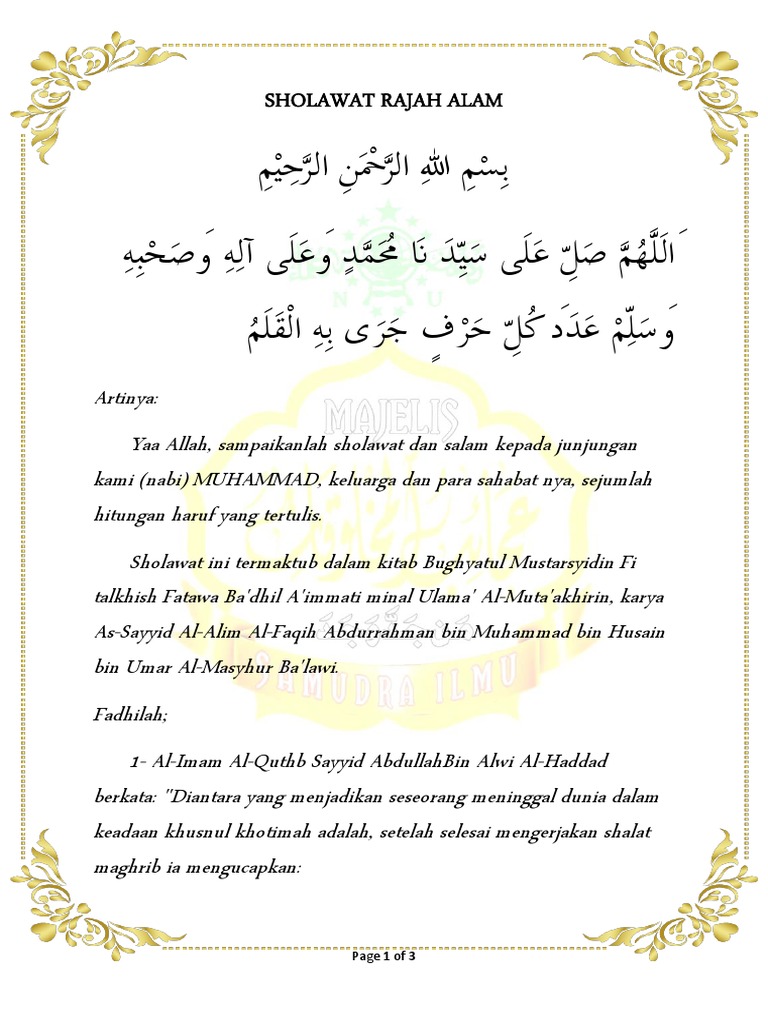 SHOLAWAT RAJAH ALAM
بِسْمِ اللهِ الرَّحْمَنِ الرَّحِيْمِ
اَللَّهُمَّ صَلِّ عَلَى سَيِّدَ نَا مُحَمَّدٍ وَعَلَى آلِهِ وَصَحْبِهِ
وَسَلِّمْ عَدَدَ كُلِّ حَرْفٍ جَرَى بِهِ الْقَلَمُ
N U
Artinya:
MAJELIS
Yaa Allah, sampaikanlah sholawat dan salam kepada junjungan
kami (nabi) MUHAMMAD, keluarga dan para sahabat nya, sejumlah
hitungan haruf yang tertulis.
Sholawat ini termaktub dalam kitab Bughyatul Mustarsyidin Fi
talkhish Fatawa Ba'dhil A'immati minal Ulama' Al-Muta'akhirin, karya
As-Sayyid Al-Alim Al-Faqih Abdurrahman bin Muhammad bin Husain
bin Umar Al-Masyhur Ba'lawi.
SAMUDRA ILMU
Fadhilah;
1- Al-Imam Al-Quthb Sayyid AbdullahBin Alwi Al-Haddad
berkata: "Diantara yang menjadikan seseorang meninggal dunia dalam
keadaan khusnul khotimah adalah, setelah selesai mengerjakan shalat
maghrib ia mengucapkan:
Page 1 of 3